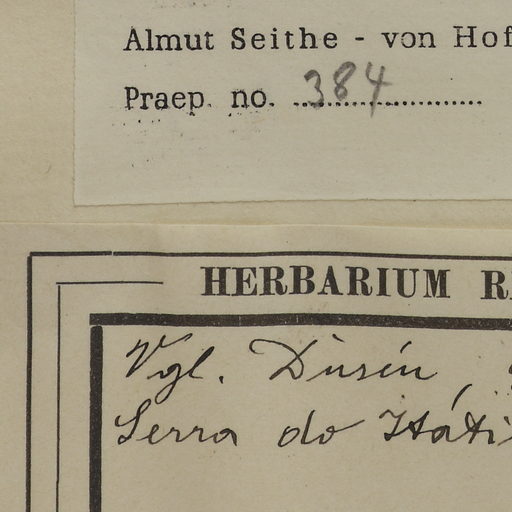 Almut Seithe - von Hof
Praep. no. 384
HERBARIUM R
Vgl. Dusén,
Serra do Itáti